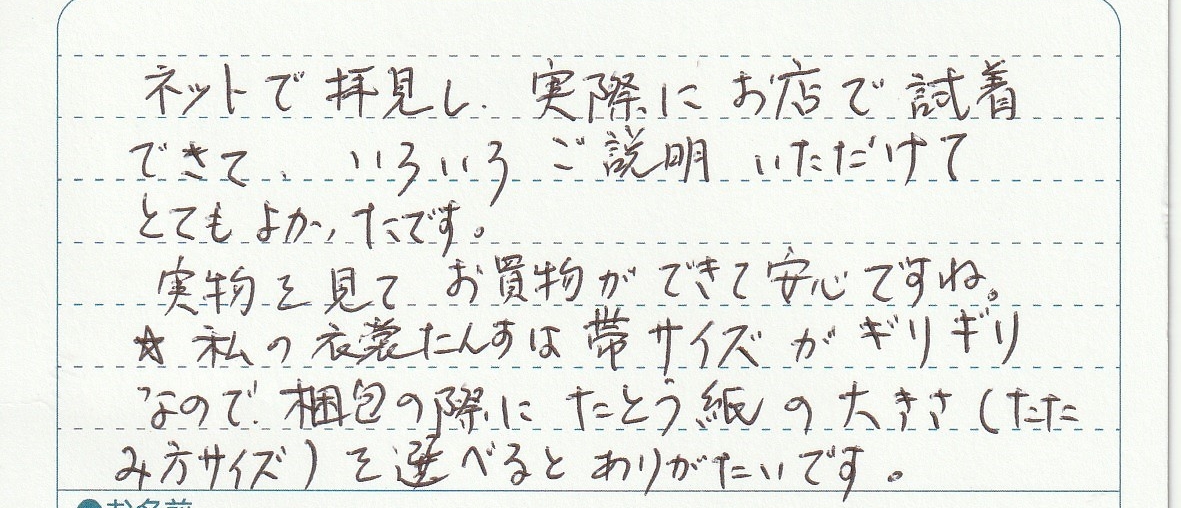 ネットで拝見し、実際にお店で試着
できて、いろいろご説明いただけて
とてもよかったです。
実物を見てお買物ができて安心ですね。
☆私の衣裳たんすは帯サイズがギリギリ
なので、梱包の際にたとう紙の大きさ(たた
み方サイズ)を選べるとありがたいです。
●お名前